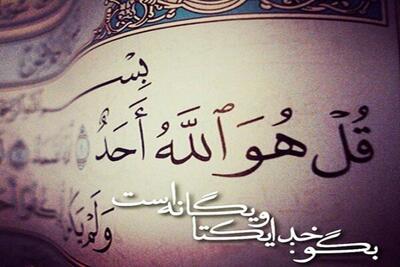 بِسْ
قُلْ هُوَ ٱللَّهُ أَحَدٌ ١
وَلَمْ يَكُ
بگو خدا یکتا و یگانه است